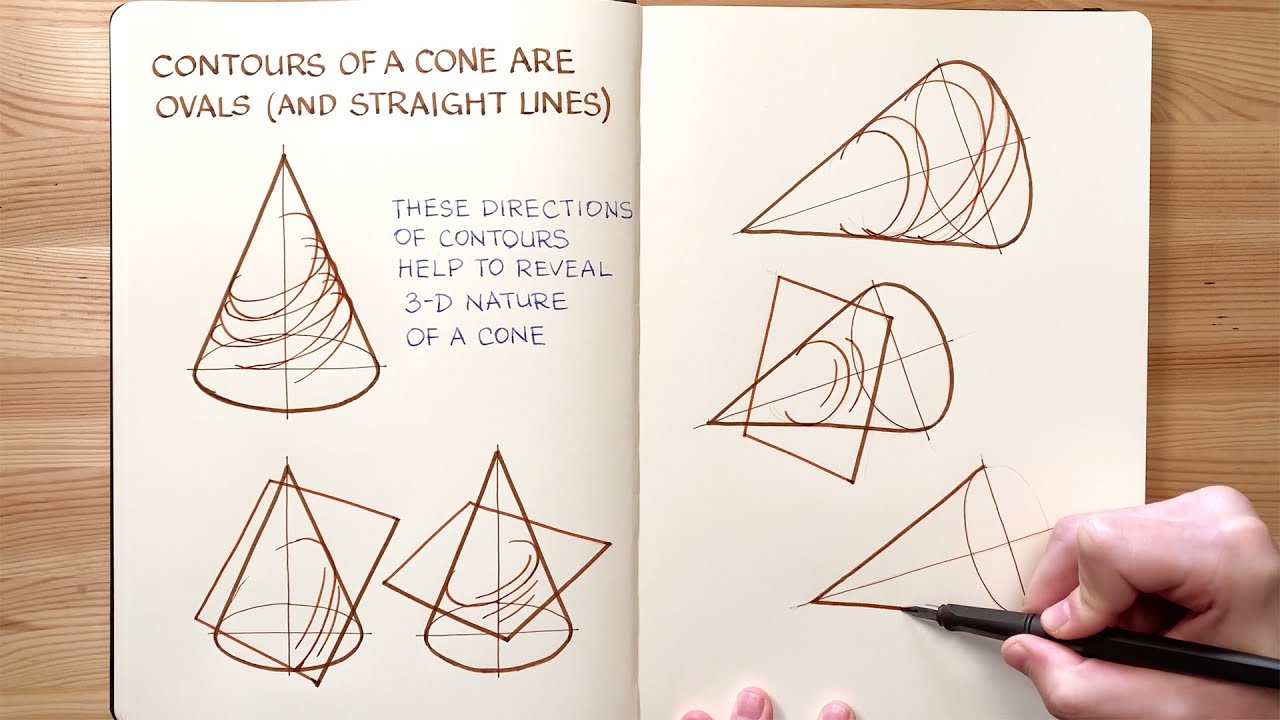 CONTOURS OF A CONE ARE
OVALS (AND STRAIGHT LINES)
THESE DIRECTIONS
OF CONTOURS
HELP TO REVEAL
3-D NATURE
OF A CONE